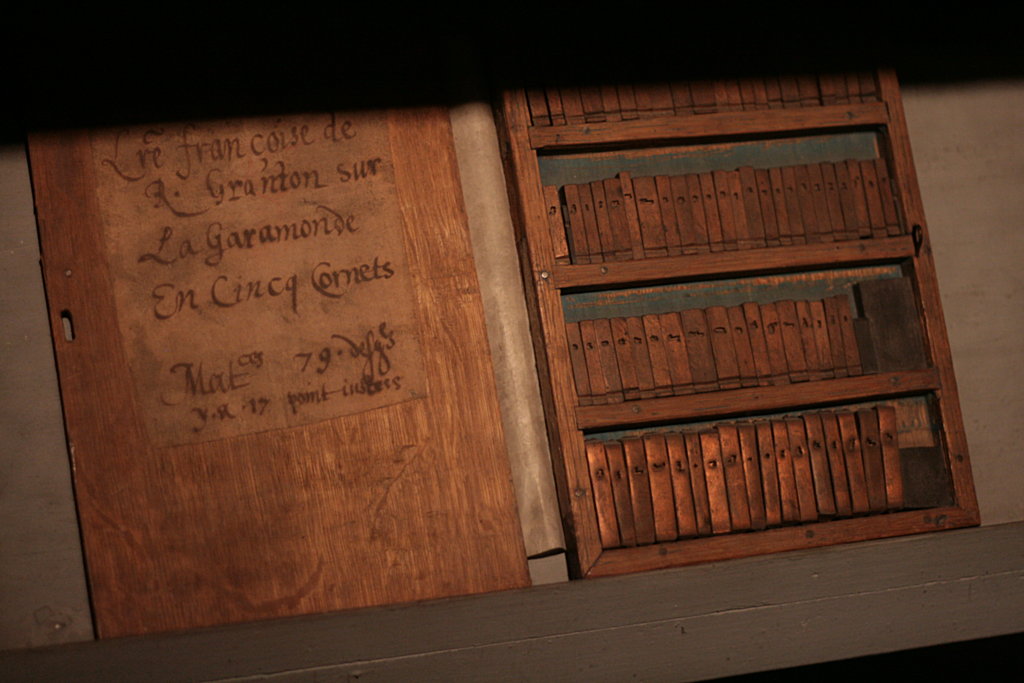 Lre francoise de
R. Granton sur
La Garamonde
En Cincq Cornets
Matces 79.
y.a. 17 point